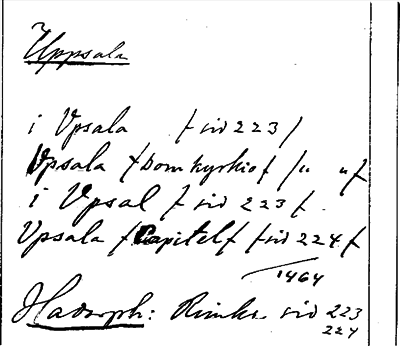 Uppsala
i Vpsala / sid 223 /
Vpsala / Domkyrkio / /u
i Vpsal / sid 223 /.
Vpsala / Capitel / / sid 224 /
1464
Hadorph: Rimkr. sid 223
224